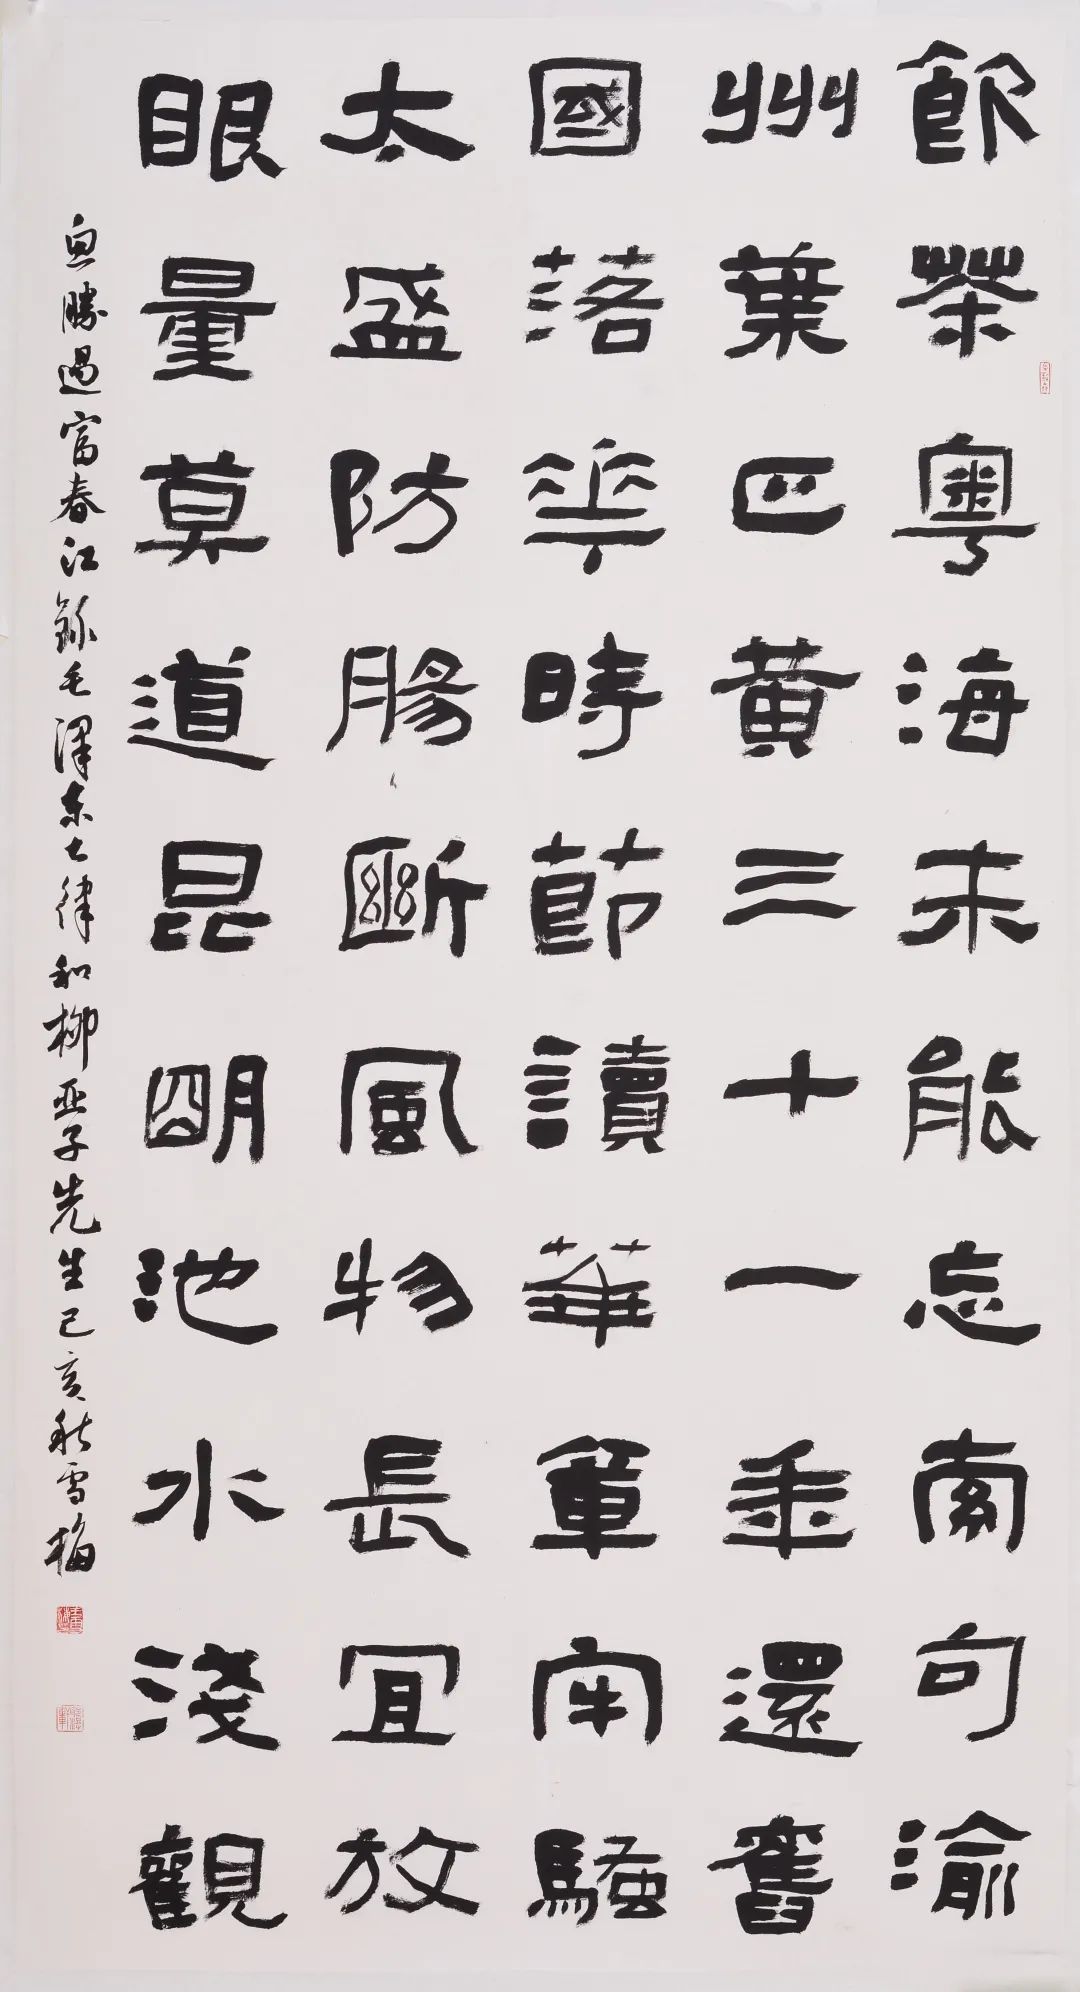 飲茶粵海未能忘索句渝
州葉正黃三十一年還舊
國落花時節讀華章牢騷
太盛防腸斷風物長宜放
眼量莫道昆明池水淺觀
魚勝過富春江錄毛澤東七律和柳亞子先生己亥秋雪梅